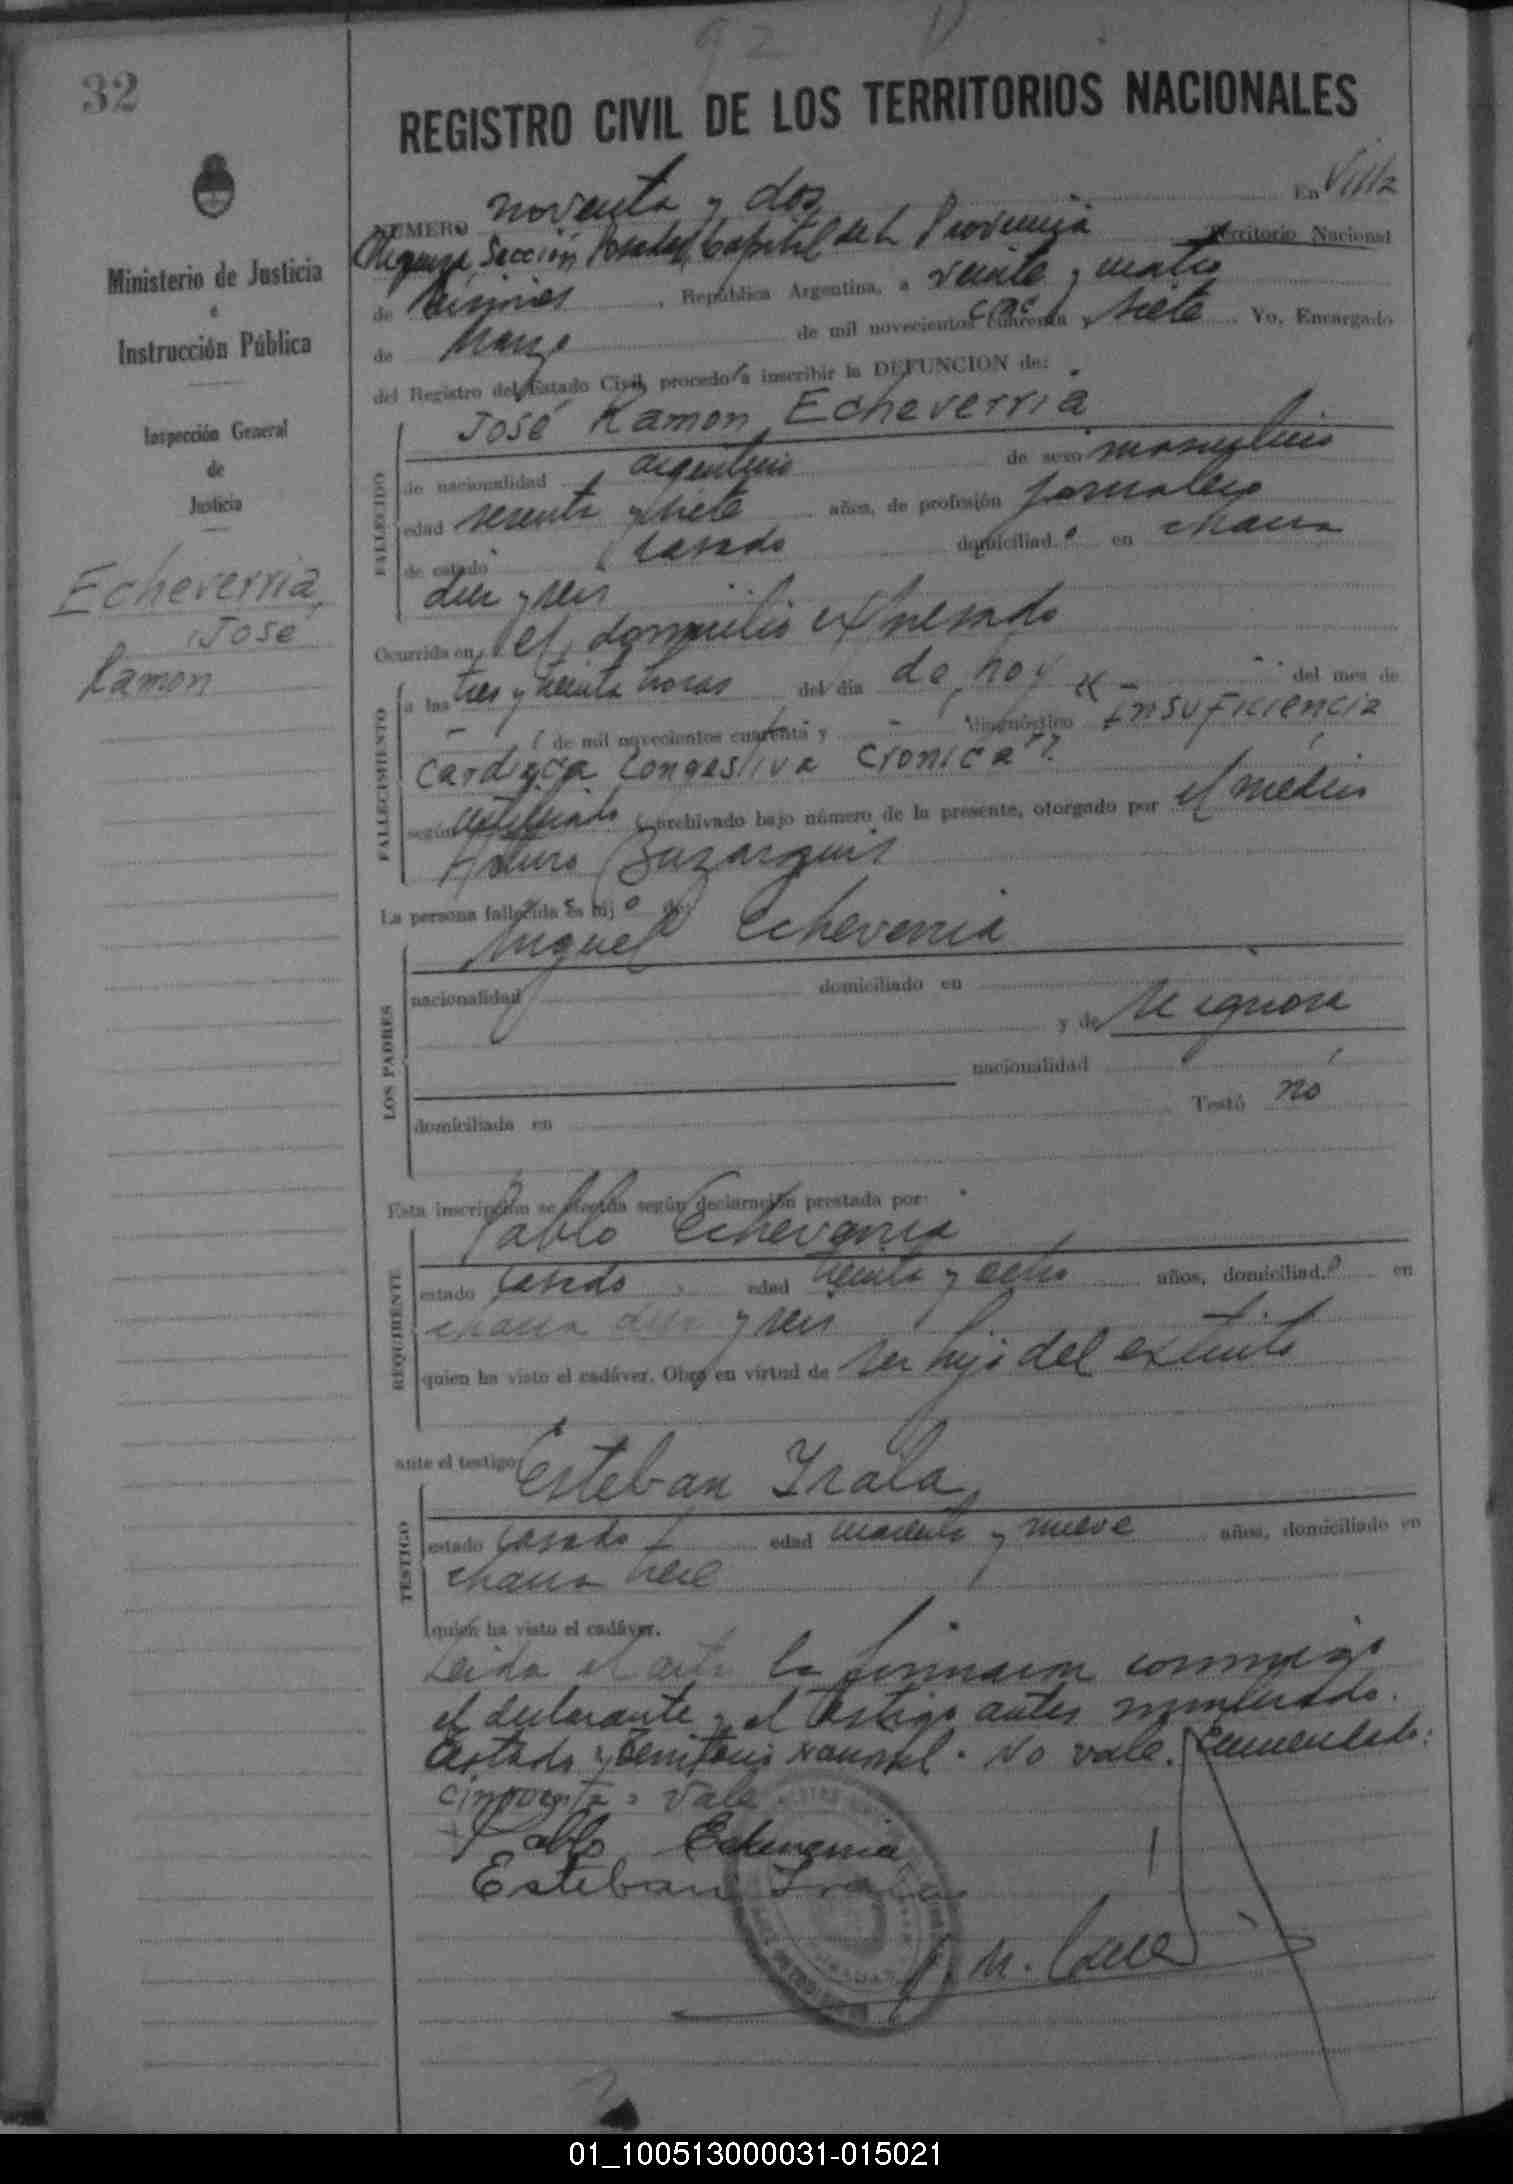 92
32
REGISTRO CIVIL DE LOS TERRITORIOS NACIONALES
Ministerio de Justicia
e
Instrucción Pública
Inspección General
de
Justicia
Echeverria,
José
Ramon
NUMERO noventa y dos En Villa
Sección Posadas Capital de la Provincia Territorio Nacional
de Misiones, República Argentina, a veinte y cuatro
de Marzo de mil novecientos cuarenta y siete Yo, Encargado
del Registro del Estado Civil, procedo a inscribir la DEFUNCION de:
José Ramon Echeverria
FALLECIDO
de nacionalidad argentino de sexo masculino
edad sesenta y siete años, de profesión jornalero
de estado casado domiciliado en chacra
diez y seis
Ocurrida en el domicilio expresado
FALLECIMIENTO
a las tres y treinta horas del día de hoy del mes de
de mil novecientos cuarenta y diagnóstico "Insuficiencia
Cardiaca Congestiva Cronica"
según certificado archivado bajo número de la presente, otorgado por el medico
Arturo
La persona fallecida es hijo de:
Miguel Echeverria
LOS PADRES
nacionalidad domiciliado en
y de se ignora
nacionalidad
domiciliada en Testó no
Esta inscripción se efectúa según declaración prestada por:
Pablo Echeverria
REQUIRENTE
estado casado edad treinta y ocho años, domiciliado en
chacra diez y seis
quien ha visto el cadáver. Obra en virtud de ser hijo del extinto
ante el testigo:
Esteban Irala
TESTIGO
estado casado edad cuarenta y nueve años, domiciliado en
chacra trece
quien ha visto el cadáver.
Leida el acta la firmaron conmigo
el declarante y el testigo antes nombrado.
Testado: Territorio Nacional. No vale. Enmendado:
cincuenta: Vale
Pablo Echeverria
Esteban Irala
01_100513000031-015021